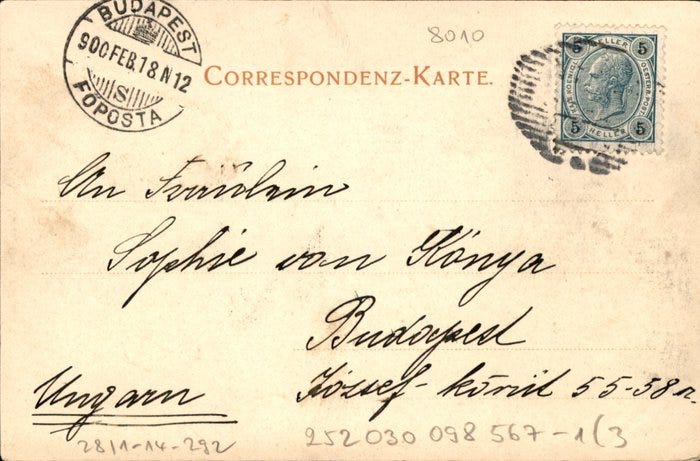 BUDAPEST
900 FEB. 18 N 12
S
FŐPOSTA
8010
CORRESPONDENZ-KARTE.
5 HELLER 5
5 HELLER 5
An Fräulein
Sophie von Kónya
Budapest
Ungarn József-körút 55-58 n.
28/1-14-292 252 030 098 567-1(3